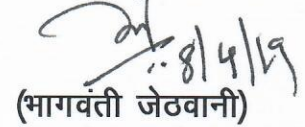 8/4/19
(भागवंती जेठवानी)